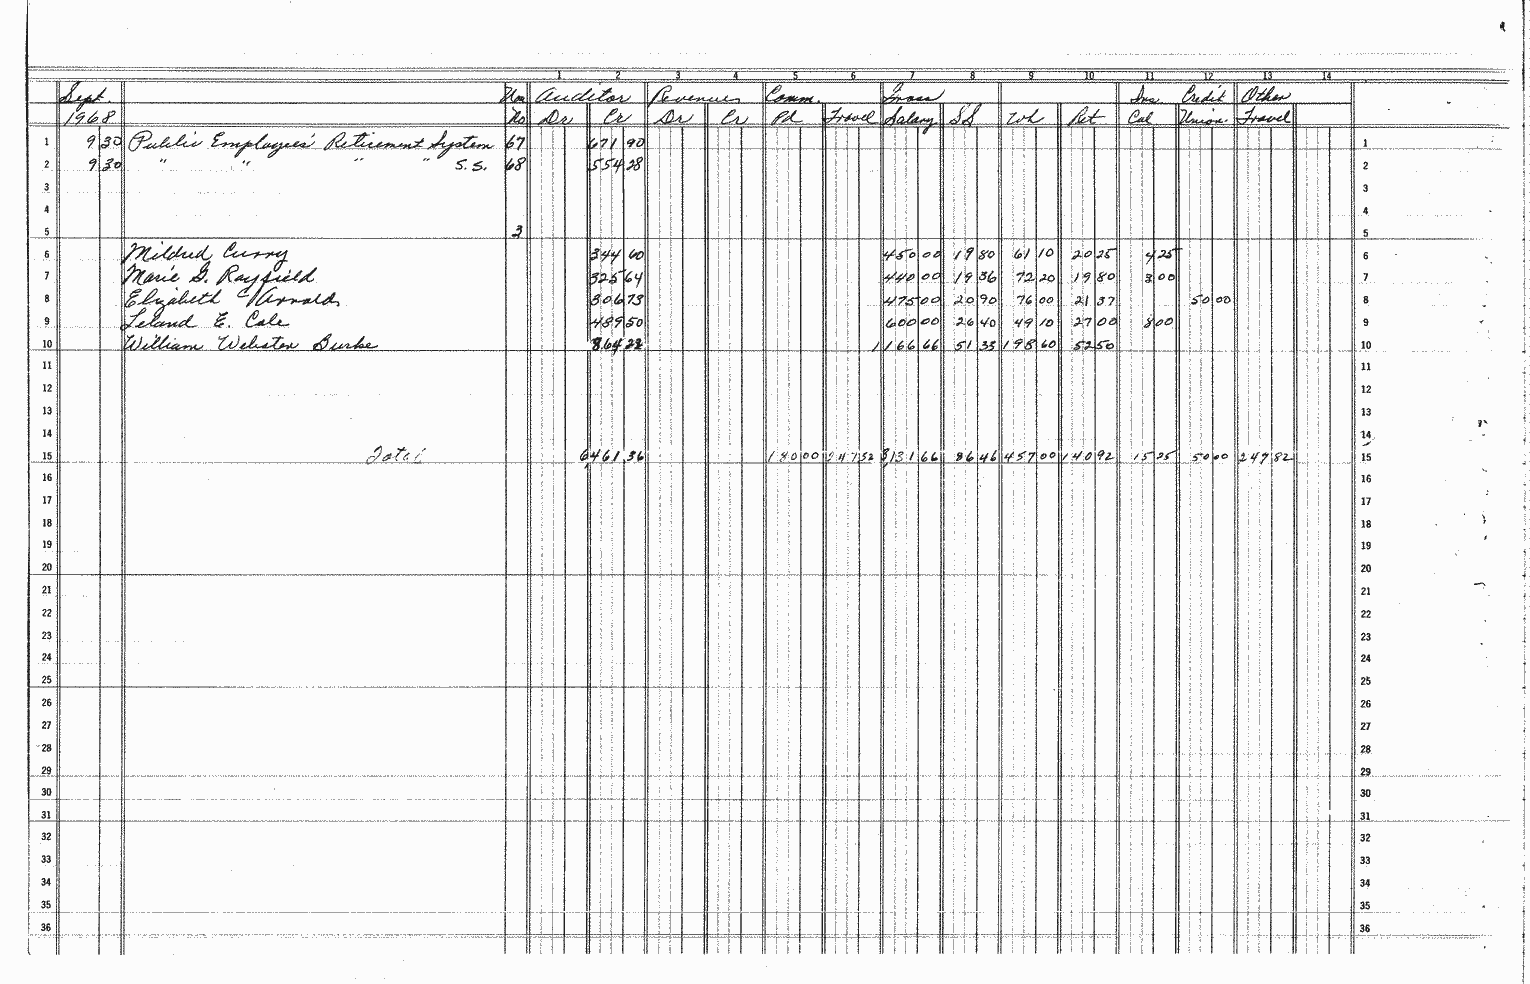 1 2 3 4 5 6 7 8 9 10 11 12 13 14
Sept. Vou Auditor Revenues Comm. Gross Ins. Credit Other
1968 No Dr Cr Dr Cr Pd Travel Salary SS Wh Ret Cal Union. Travel
1 9 30 Public Employees' Retirement System 67 671 90 1
2 9 30 " " " " S.S. 68 554 28 2
3 3
4 4
5 3 5
6 Mildred Curry 344 60 450 00 19 80 61 10 20 25 4 25 6
7 Marie G. Rayfield 325 64 440 00 19 36 72 20 19 80 3 00 7
8 Elizabeth C Arnolds 306 73 475 00 20 90 76 00 21 37 50 00 8
9 Leland E. Cale 489 50 600 00 26 40 49 10 27 00 8 00 9
10 William Webster Burke 864 22 1 166 66 51 33 198 60 52 50 10
11 11
12 12
13 13
14 14
15 Total 6 461 36 180 00 247 52 3 131 66 86 46 457 00 140 92 15 25 50 00 247 82 15
16 16
17 17
18 18
19 19
20 20
21 21
22 22
23 23
24 24
25 25
26 26
27 27
28 28
29 29
30 30
31 31
32 32
33 33
34 34
35 35
36 36